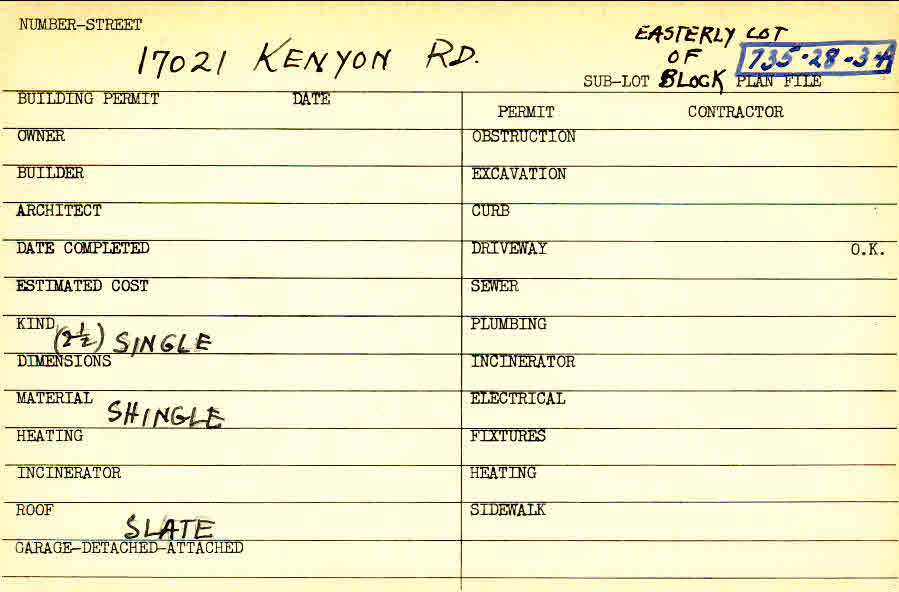 NUMBER-STREET
17021 KENYON RD.
EASTERLY LOT
OF
735-28-34
SUB-LOT BLOCK PLAN FILE
BUILDING PERMIT DATE
PERMIT CONTRACTOR
OWNER
OBSTRUCTION
BUILDER
EXCAVATION
ARCHITECT
CURB
DATE COMPLETED
DRIVEWAY O.K.
ESTIMATED COST
SEWER
KIND (2½) SINGLE
PLUMBING
DIMENSIONS
INCINERATOR
MATERIAL SHINGLE
ELECTRICAL
HEATING
FIXTURES
INCINERATOR
HEATING
ROOF SLATE
SIDEWALK
GARAGE-DETACHED-ATTACHED